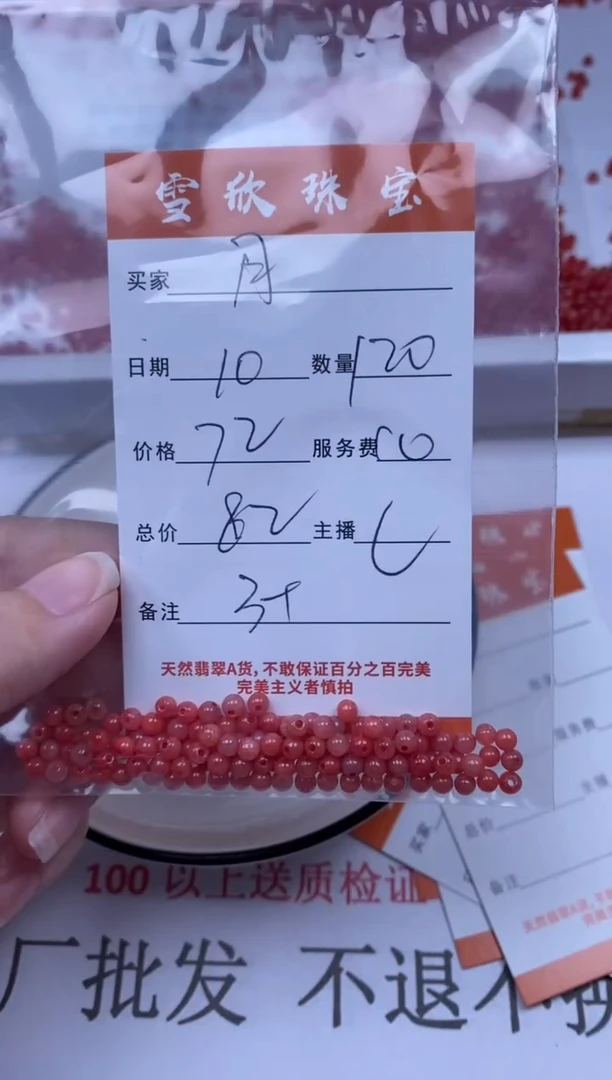 雪欣珠宝
买家 月
日期 10 数量 120
价格 72 服务费 10
总价 82 主播 L
备注 3+
天然翡翠A货,不敢保证百分之百完美
完美主义者慎拍
珠宝
服务费
总价 主播
买家
备注
100以上送质检证
厂批发 不退不换